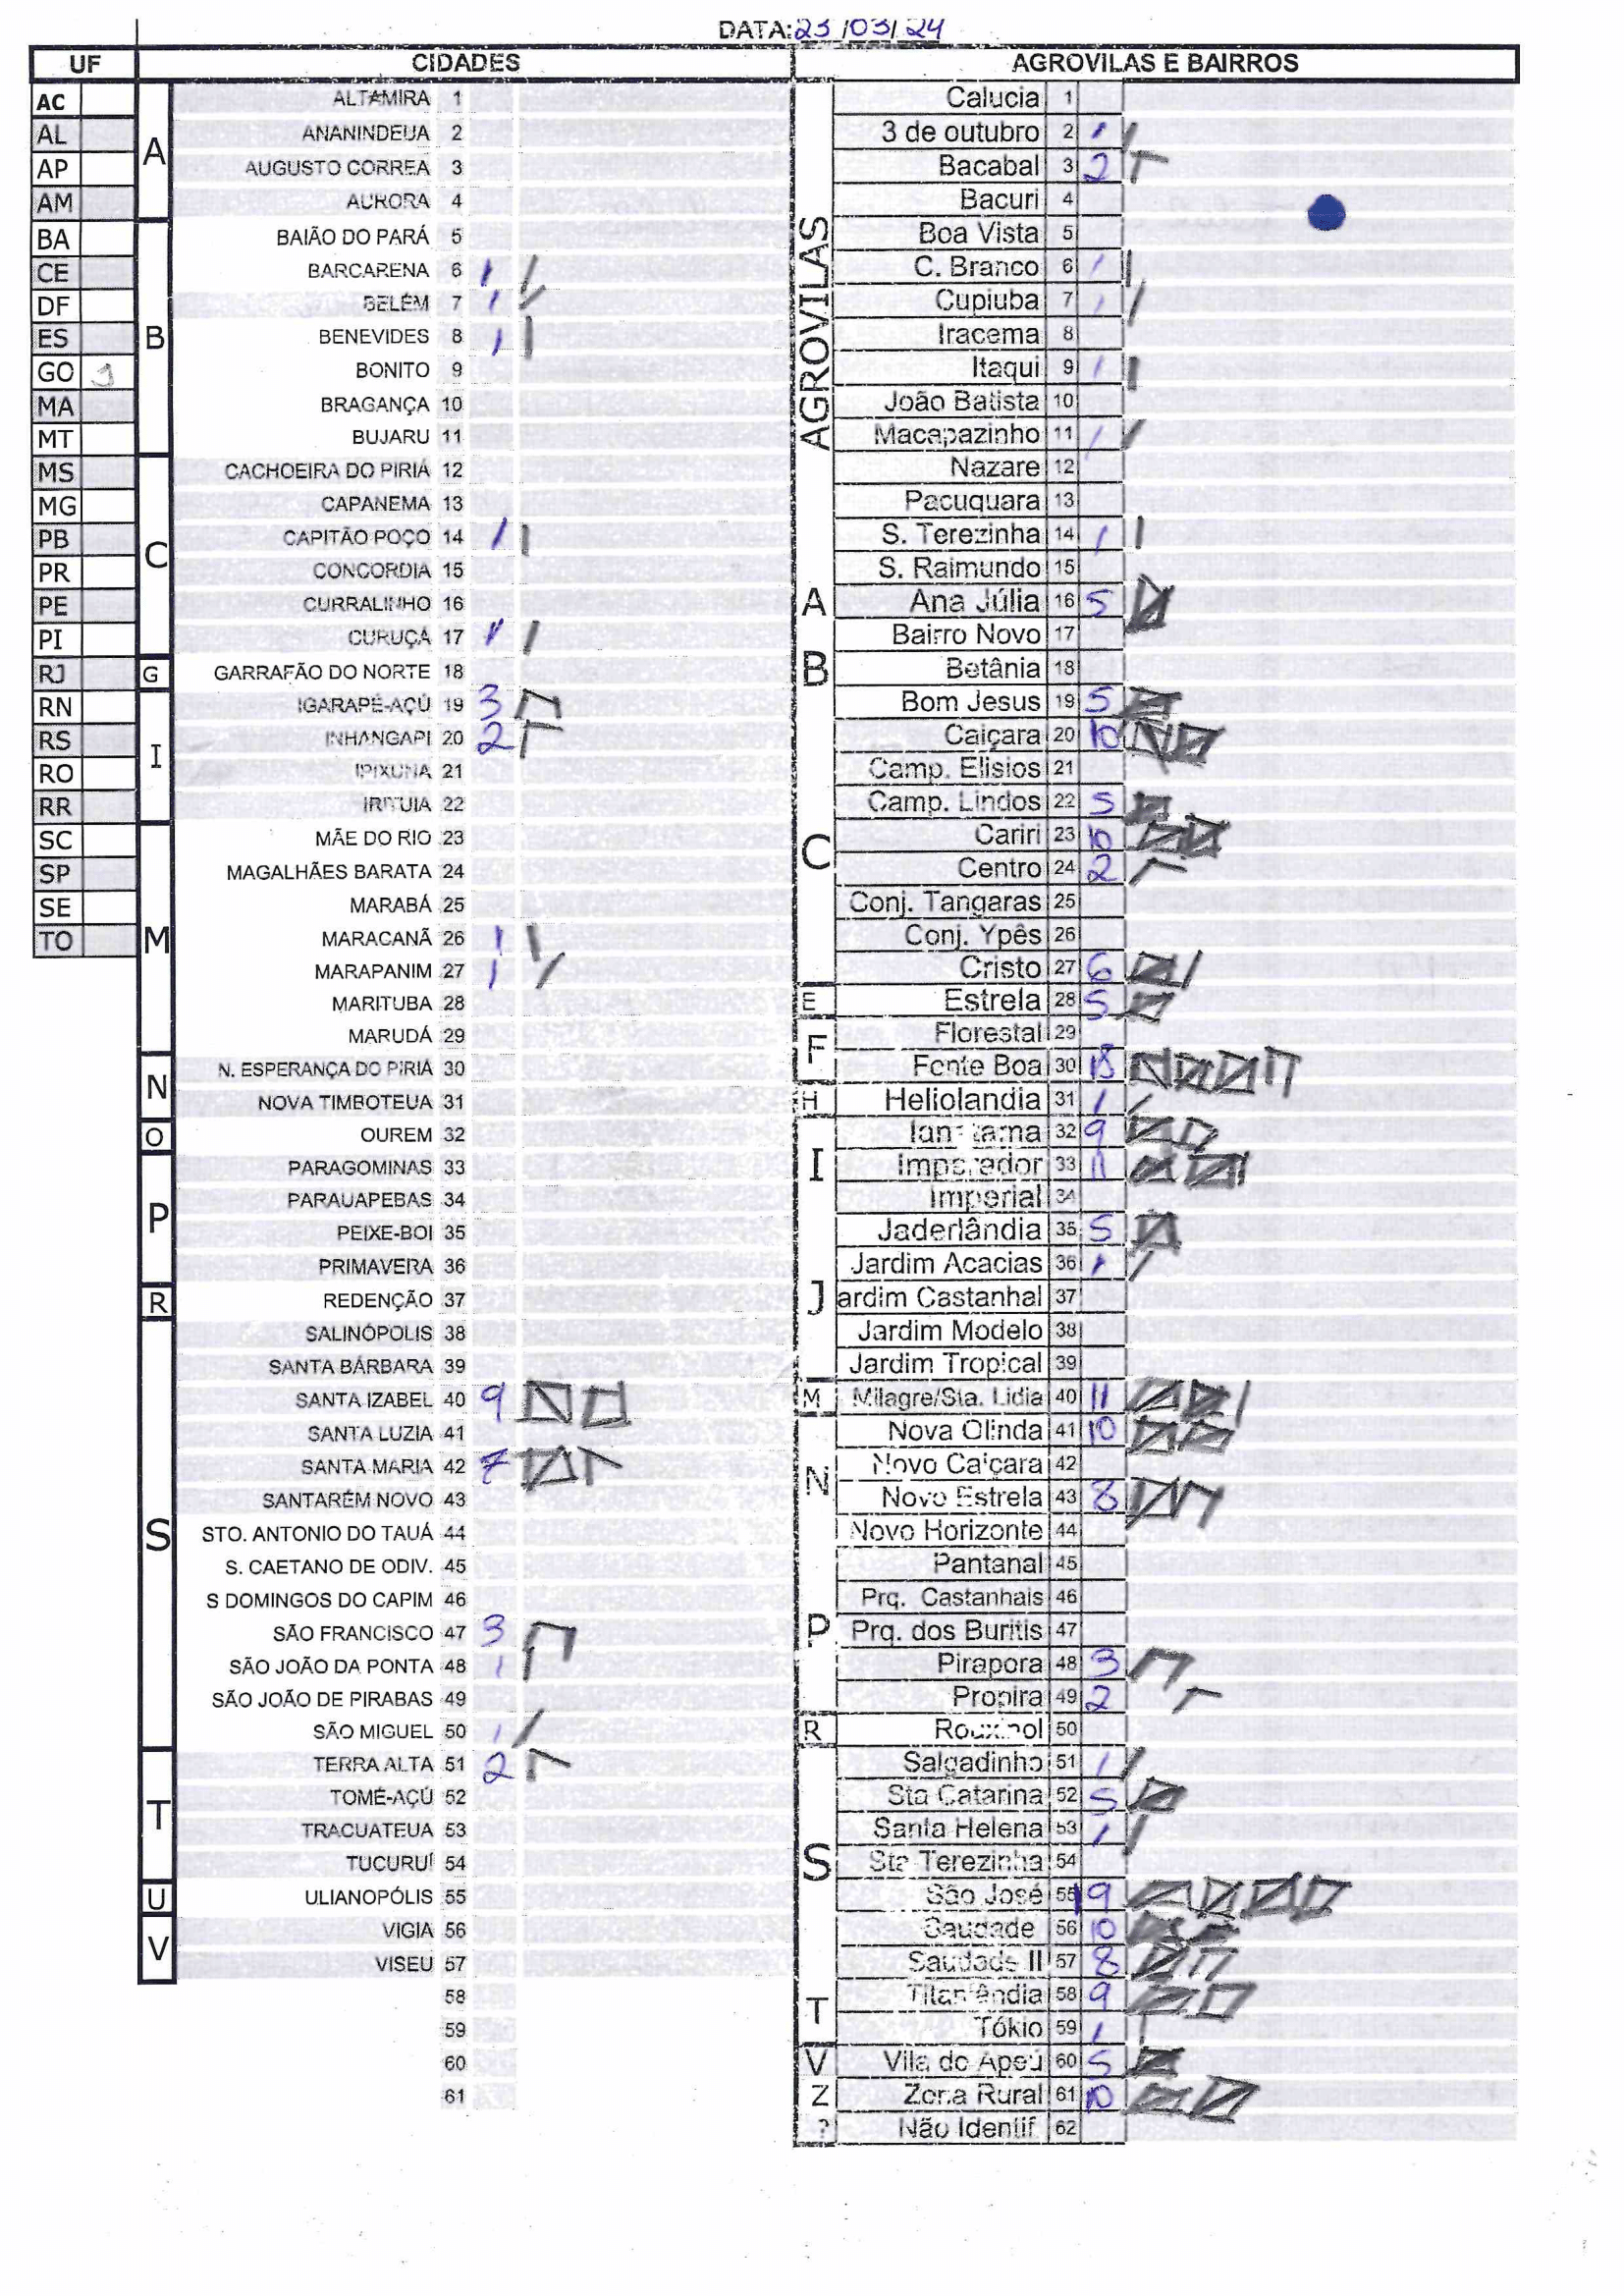 DATA: 23/03/24
UF CIDADES AGROVILAS E BAIRROS
AC
AL
AP
AM
BA
CE
DF
ES
GO 1
MA
MT
MS
MG
PB
PR
PE
PI
RJ
RN
RS
RO
RR
SC
SP
SE
TO
A
ALTAMIRA 1
ANANINDEUA 2
AUGUSTO CORREA 3
AURORA 4
B
BAIÃO DO PARÁ 5
BARCARENA 6 1
BELÉM 7 1
BENEVIDES 8 1
BONITO 9
BRAGANÇA 10
BUJARU 11
C
CACHOEIRA DO PIRIÁ 12
CAPANEMA 13
CAPITÃO POÇO 14 1
CONCORDIA 15
CURRALINHO 16
CURUÇÁ 17 1
G
GARRAFÃO DO NORTE 18
I
IGARAPÉ-AÇÚ 19 3
INHANGAPI 20 2
IPIXUNA 21
IRITUIA 22
M
MÃE DO RIO 23
MAGALHÃES BARATA 24
MARABÁ 25
MARACANÃ 26 1
MARAPANIM 27 1
MARITUBA 28
MARUDÁ 29
N
N. ESPERANÇA DO PIRIÁ 30
NOVA TIMBOTEUA 31
O
OUREM 32
P
PARAGOMINAS 33
PARAUAPEBAS 34
PEIXE-BOI 35
PRIMAVERA 36
R
REDENÇÃO 37
S
SALINÓPOLIS 38
SANTA BÁRBARA 39
SANTA IZABEL 40 9
SANTA LUZIA 41
SANTA MARIA 42 7
SANTARÉM NOVO 43
STO. ANTONIO DO TAUÁ 44
S. CAETANO DE ODIV. 45
S DOMINGOS DO CAPIM 46
SÃO FRANCISCO 47 3
SÃO JOÃO DA PONTA 48 1
SÃO JOÃO DE PIRABAS 49
SÃO MIGUEL 50 1
T
TERRA ALTA 51 2
TOMÉ-AÇÚ 52
TRACUATEUA 53
TUCURUÍ 54
U
ULIANOPÓLIS 55
V
VIGIA 56
VISEU 57
58
59
60
61
AGROVILAS
Calucia 1
3 de outubro 2 1
Bacabal 3 2
Bacuri 4
Boa Vista 5
C. Branco 6 1
Cupiuba 7 1
Iracema 8
Itaqui 9 1
João Batista 10
Macapazinho 11 1
Nazare 12
Pacuquara 13
S. Terezinha 14 1
S. Raimundo 15
A
Ana Júlia 16 5
Bairro Novo 17
B
Betânia 18
Bom Jesus 19 5
Caiçara 20 10
Camp. Elisios 21
Camp. Lindos 22 5
C
Cariri 23 10
Centro 24 2
Conj. Tangaras 25
Conj. Ypês 26
Cristo 27 6
E
Estrela 28 5
F
Florestal 29
Fonte Boa 30 18
H
Heliolandia 31 1
I
Ianetama 32 9
Imperador 33 11
Imperial 34
J
Jaderlândia 35 5
Jardim Acacias 36 1
ardim Castanhal 37
Jardim Modelo 38
Jardim Tropical 39
M
Milagre/Sta. Lidia 40 11
N
Nova Olinda 41 10
Novo Caiçara 42
Novo Estrela 43 8
Novo Horizonte 44
P
Pantanal 45
Prq. Castanhais 46
Prq. dos Buritis 47
Pirapora 48 3
Propira 49 2
R
Rouxinol 50
S
Salgadinho 51 1
Sta Catarina 52 5
Santa Helena 53 1
Sta Terezinha 54
São José 55 19
Saudade 56 10
Saudade II 57 8
T
Titanlândia 58 9
Tókio 59 1
V
Vila do Apeú 60 5
Z
Zona Rural 61 10
?
Não Identif 62